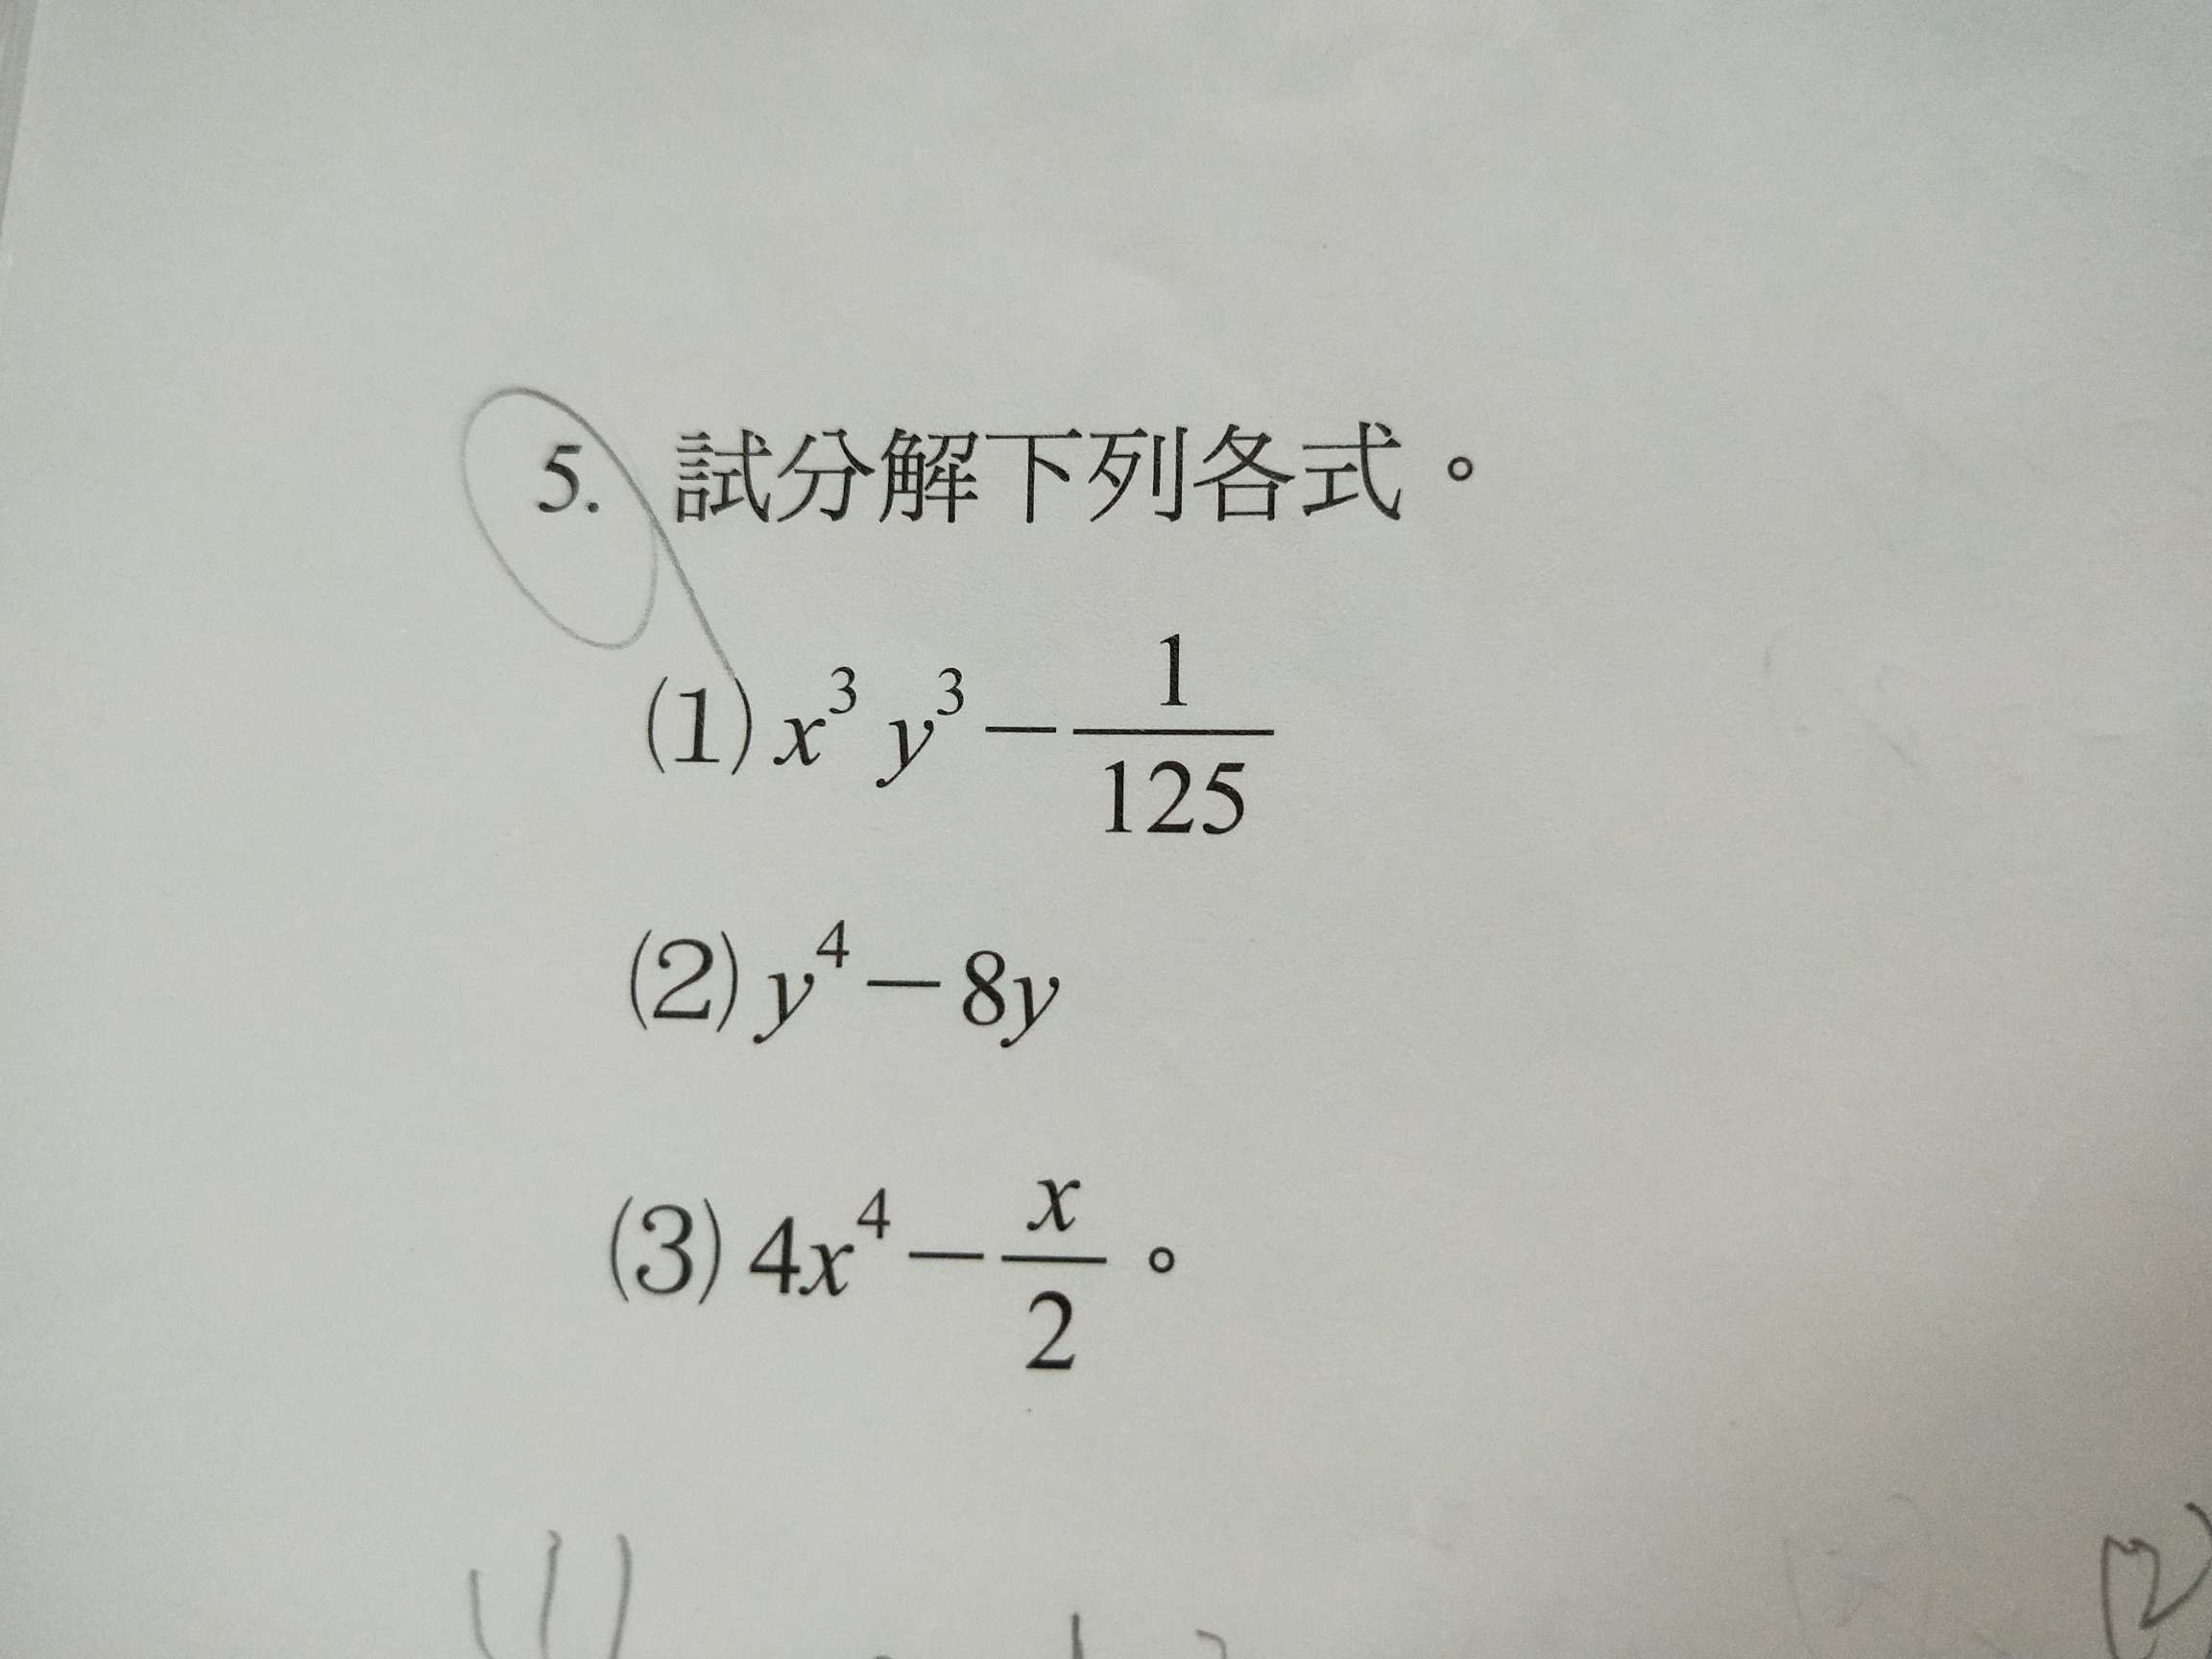 5. 試分解下列各式。
(1) x³ y³ − 1/125
(2) y⁴ − 8y
(3) 4x⁴ − x/2。
(1) (2)